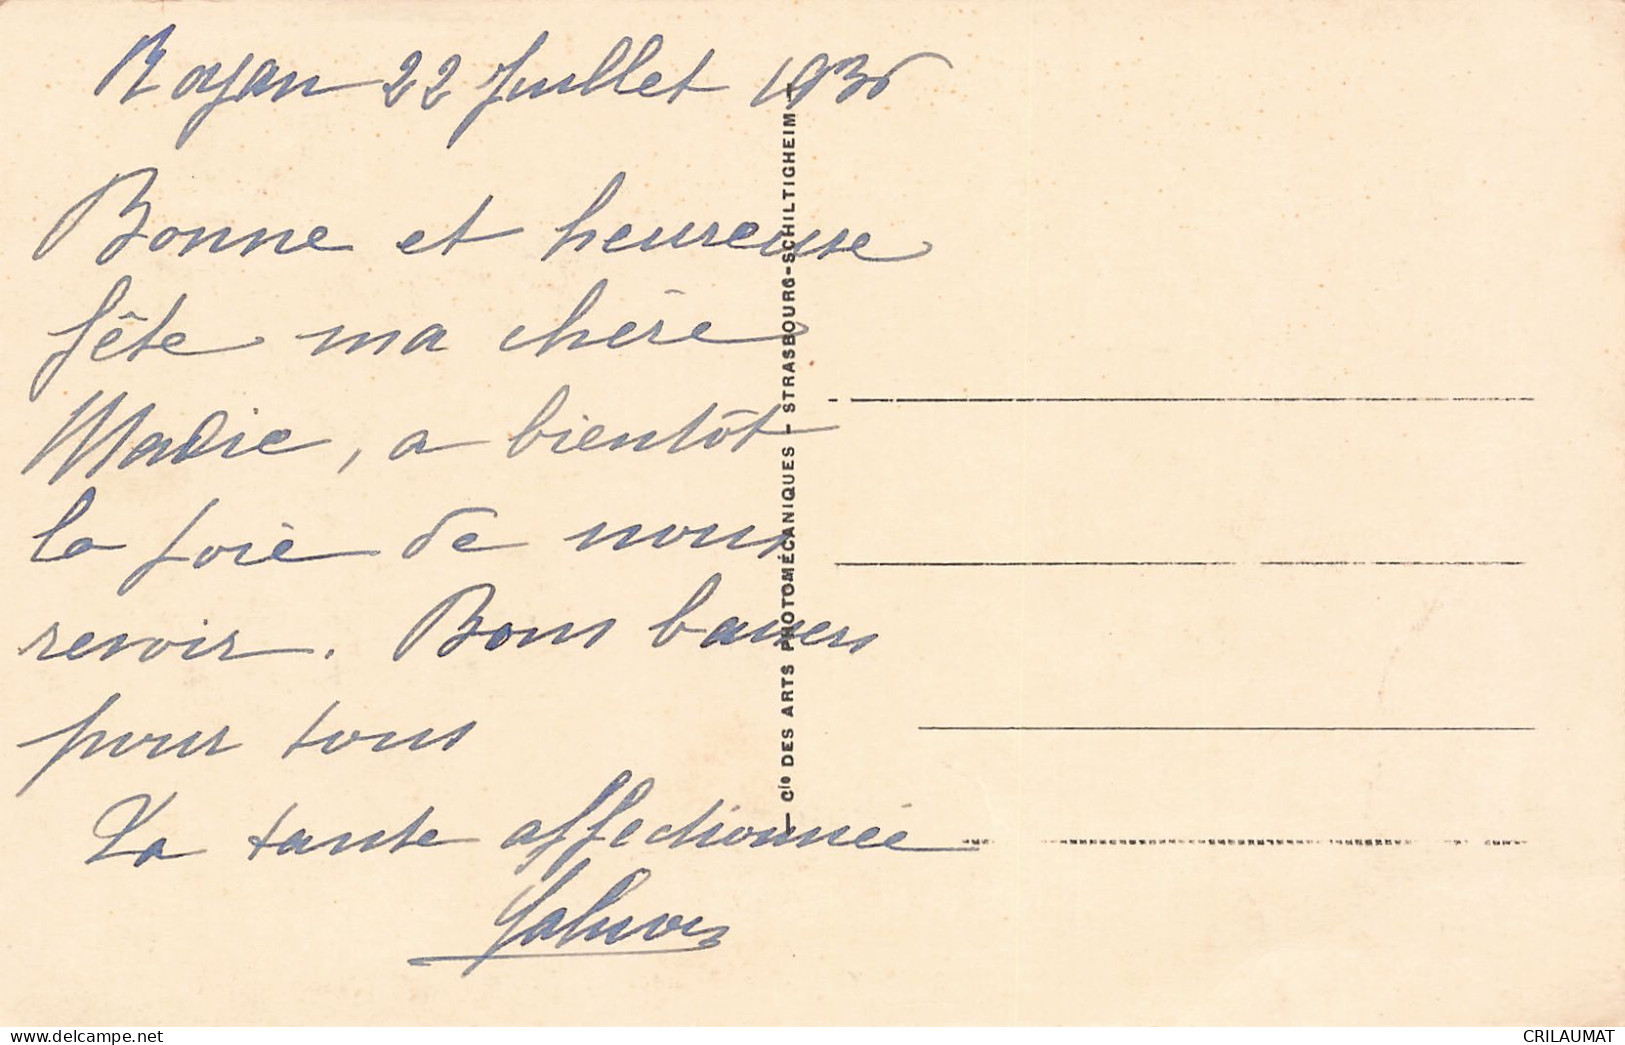 Royan 22 Juillet 1936
Bonne et heureuse
fête ma chère
Madie, a bientôt
la joie de nous
revoir. Bons baisers
pour tous
Ta tante affectionnée
— Cie DES ARTS PHOTOMÉCANIQUES - STRASBOURG-SCHILTIGHEIM —
https://www.delcampe.net
CRILAUMAT